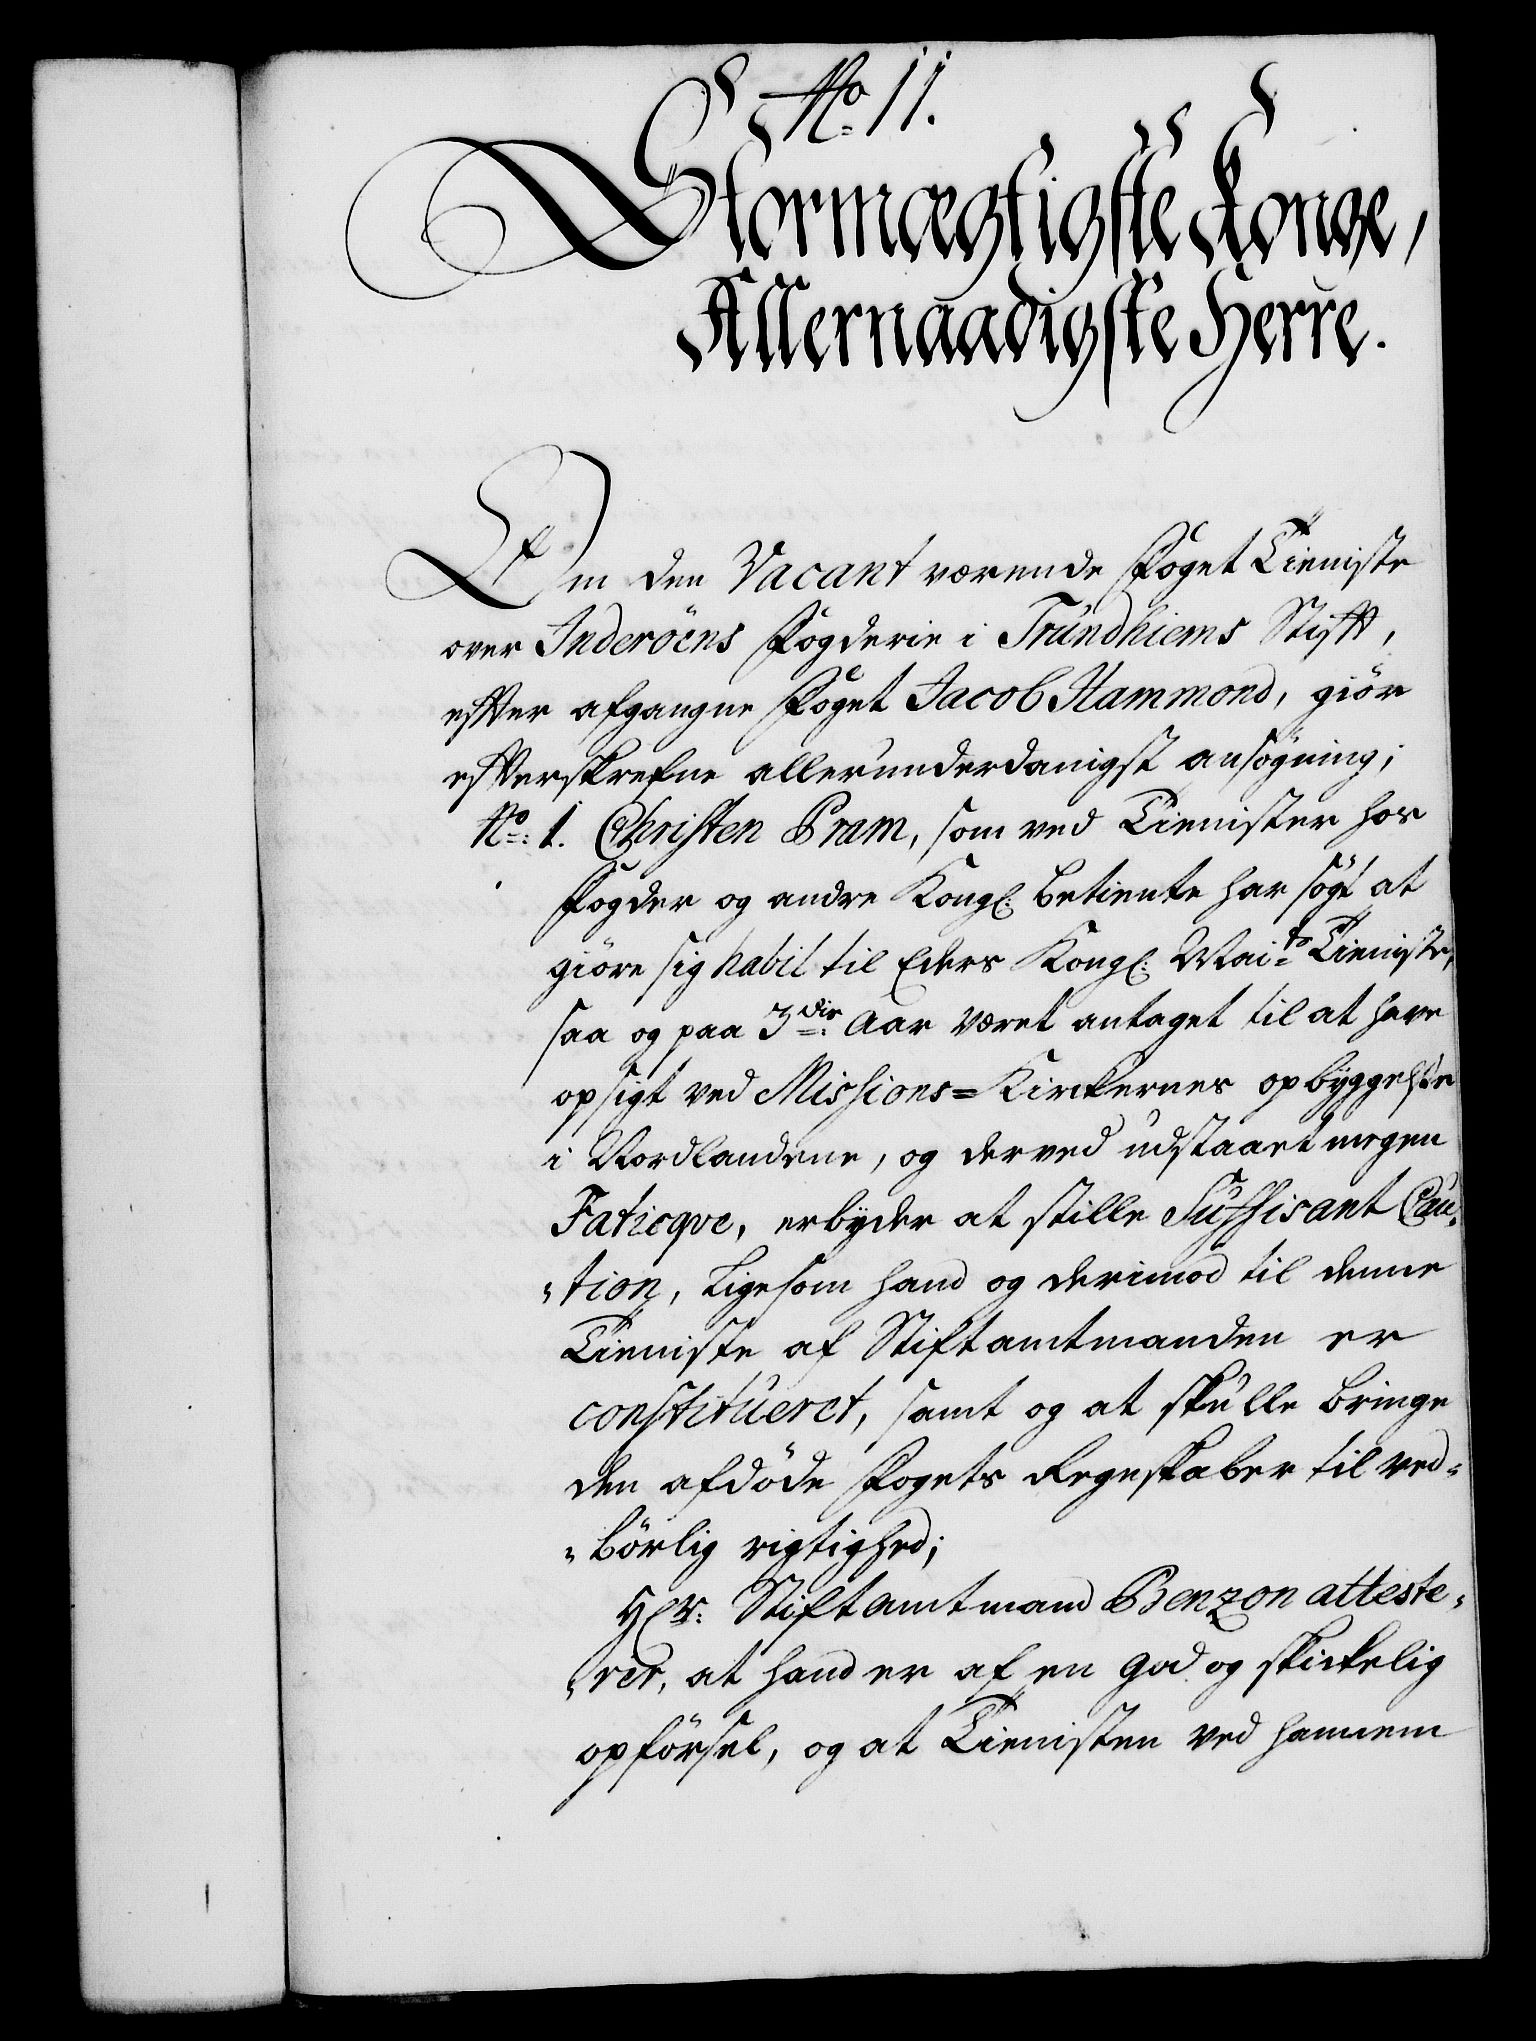 No 11.
Stormægtigste Konge,
Allernaadigste Herre.
Om den Vacant værende Foget Tieniste
over Inderöens Fogderie i Trundhiems Stift,
effter afgangne Foget Jacob Hammond, giör
effterskrefne allerunderdanigst ansögning;
No: 1. Christen Pram, som ved Tienister hos
Fogder og andre Kongl: betiente har sögt at
giöre sig habil til Eders Kongl: Mai:ts Tieniste,
saa og paa 3die Aar været antaget til at have
opsigt ved Missions=Kirckernes opbyggelse
i Nordlandene, og derved udstaaet megen
Faticqve, erbyder at stille Suffisant Cau-
-tion, ligesom hand og derimod til denne
Tieniste af Stiftamtmanden er
constitueret, samt og at skulle bringe
den afdöde Fogets Regnskaber til ved-
-börlig rigtighed;
Hr: Stiftamtmand Benzon atteste-
-rer, at hand er af en god og skickelig
opförsel, og at Tienisten ved hannem